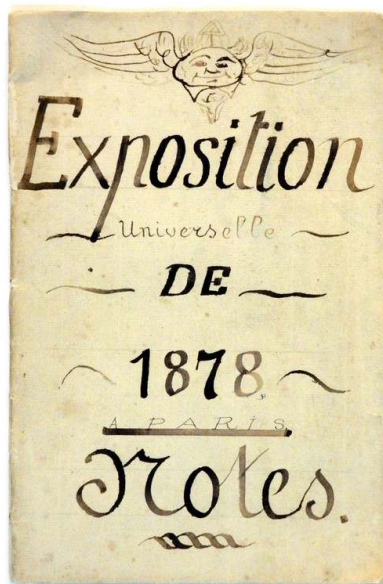 Exposition
Universelle
DE
1878
A PARIS
Notes.